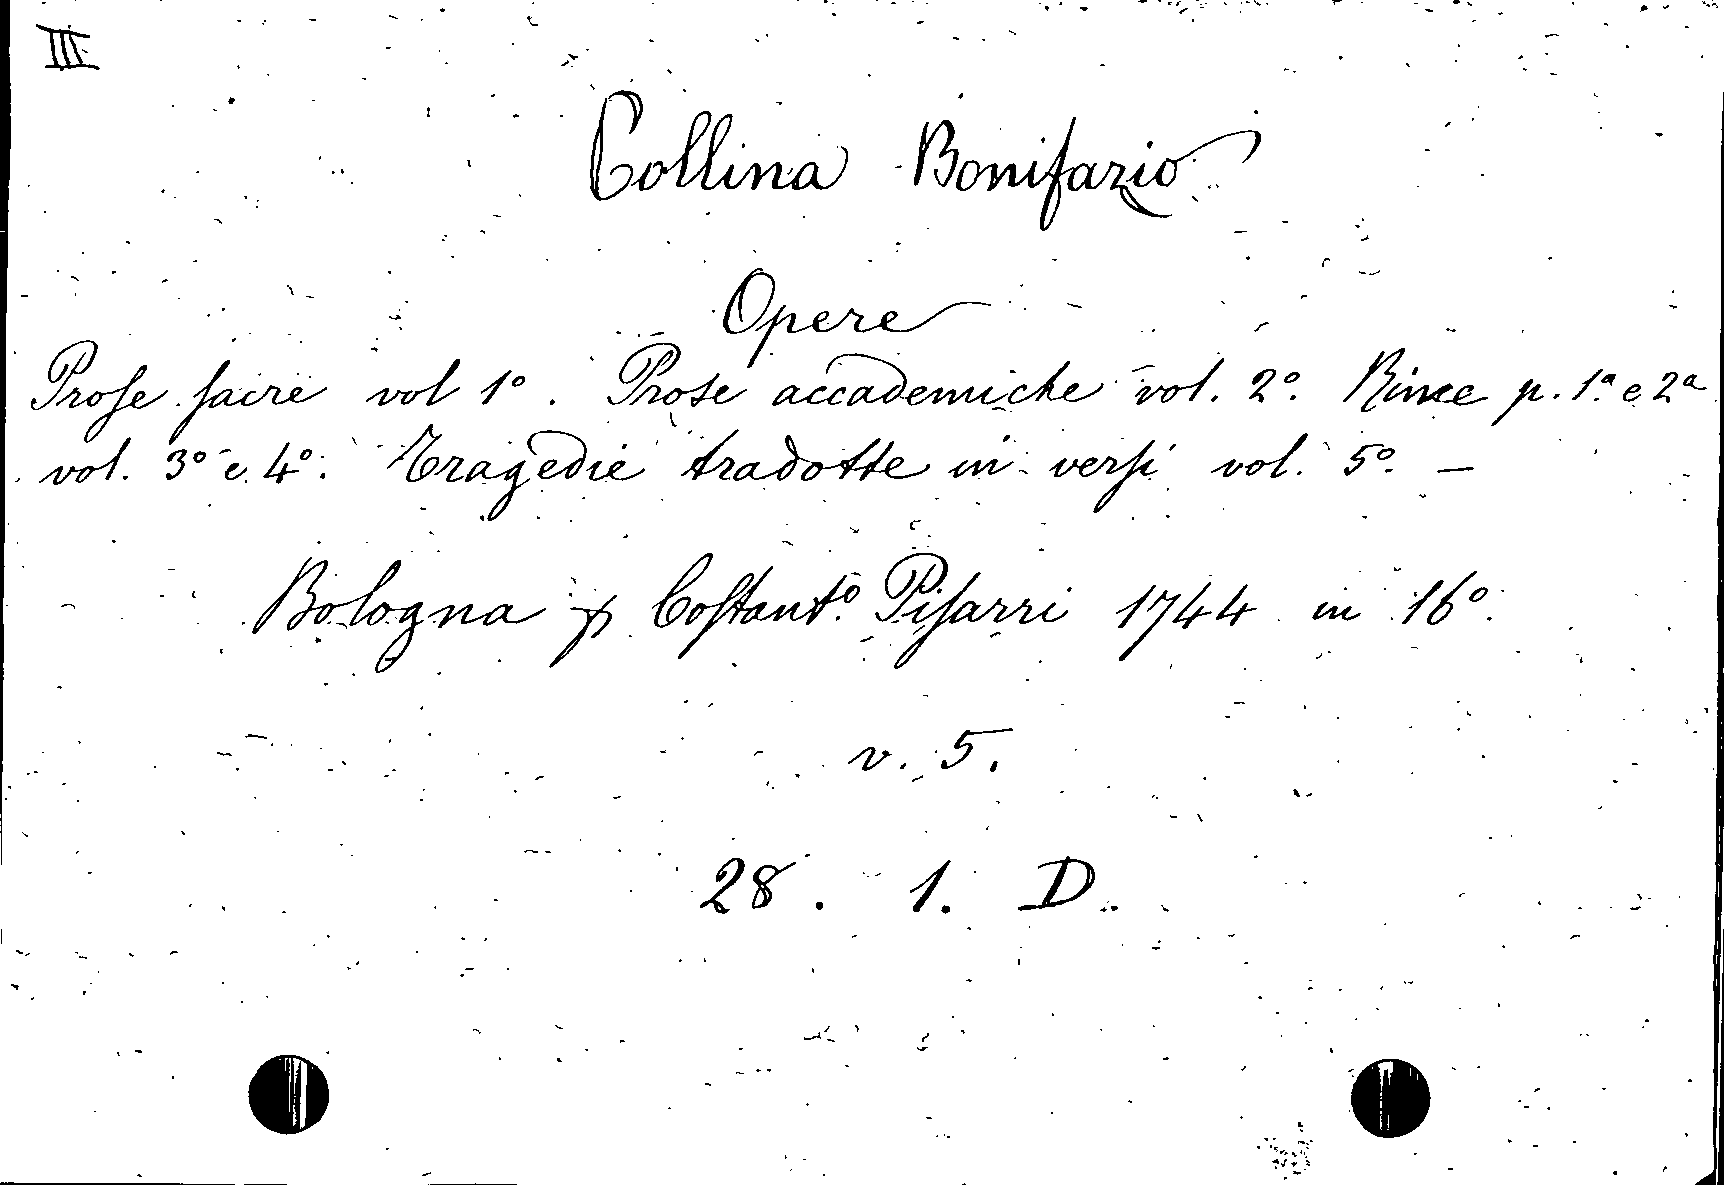 III
Collina Bonifazio
Opere
Prose sacre vol 1º. Prose accademiche vol. 2º. Rime p. 1ª e 2ª
vol. 3º e 4º. Tragedie tradotte in versi vol. 5º. —
Bologna p Costantº Pisarri 1744 in 16º.
v. 5.
28. 1. D.